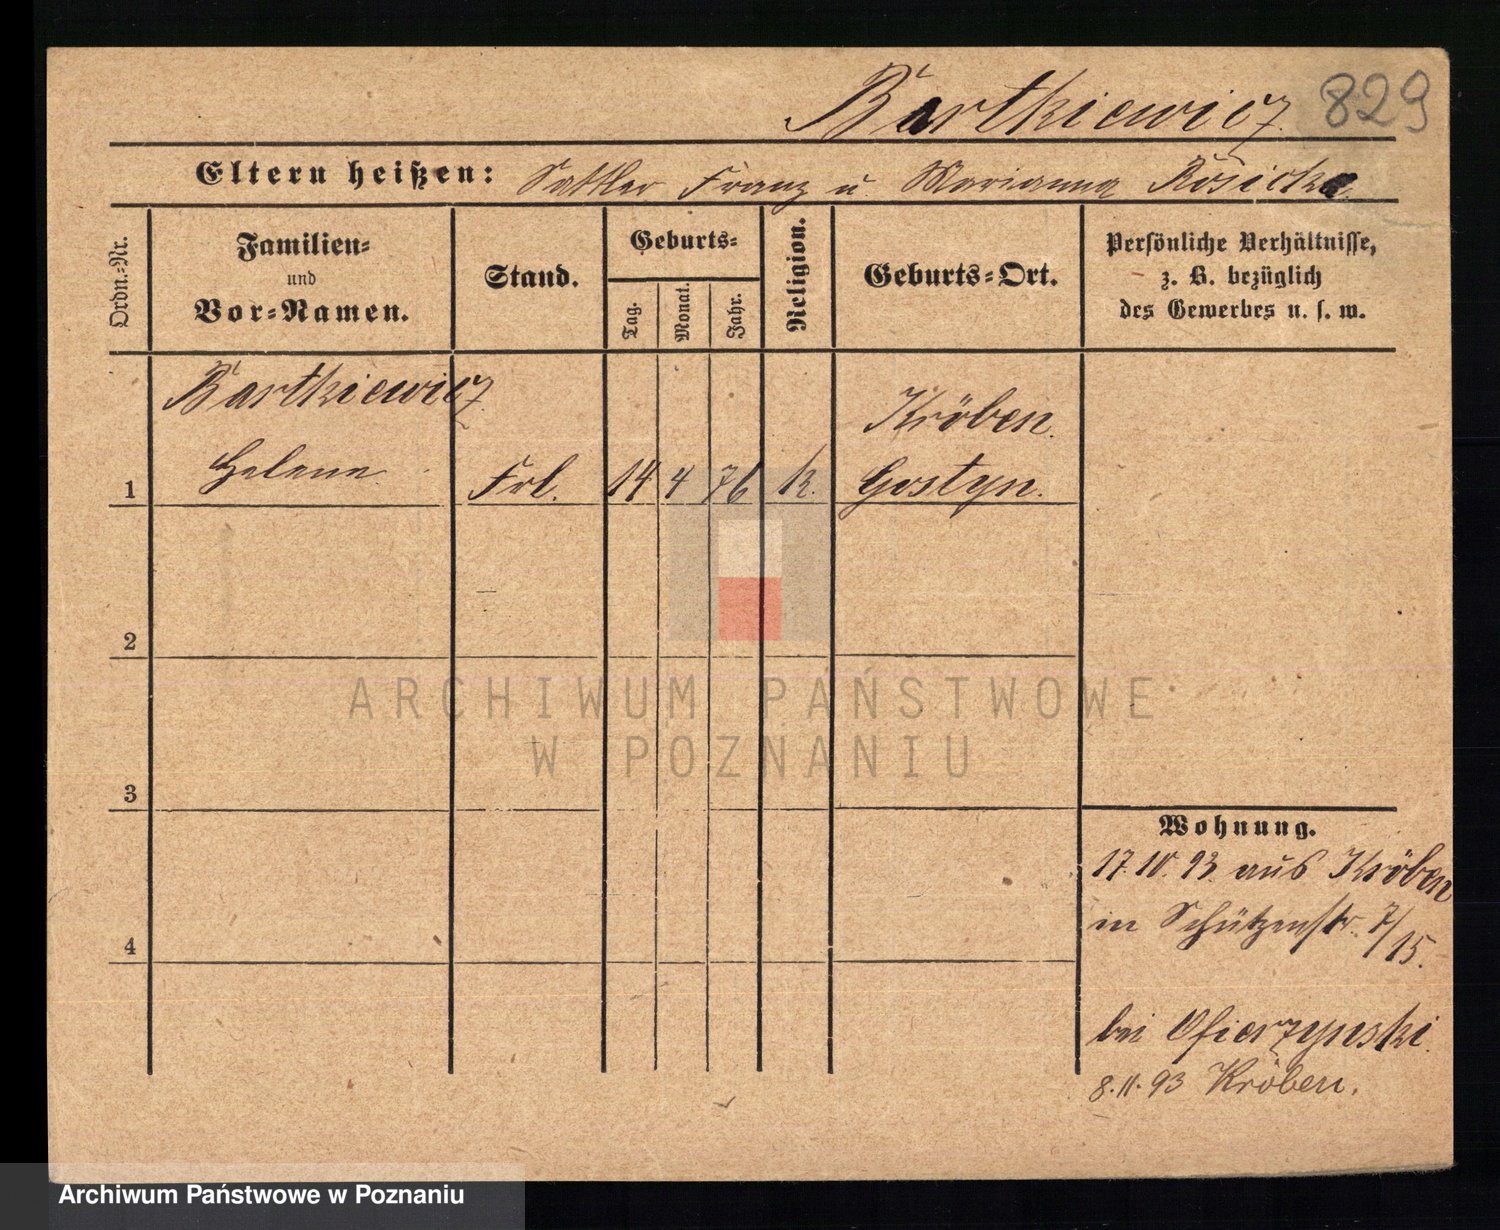 Bartkiewicz 829
Eltern heißen: Sattler Franz u Marianna
Ordn.=Nr.
Familien=
und
Vor=Namen.
Stand.
Geburts=
Tag.
Monat.
Jahr.
Religion.
Geburts=Ort.
Persönliche Verhältnisse,
z. B. bezüglich
des Gewerbes u. s. w.
Bartkiewicz
Kröben
1 Helene Frl. 14 4 76 k. Gostyn.
2
3
4
Wohnung.
17.10.93. aus Kröben
in Schützenstr. 7/15.
bei Ofierzynski.
8.11.93 Kröben.
ARCHIWUM PAŃSTWOWE
W POZNANIU
Archiwum Państwowe w Poznaniu